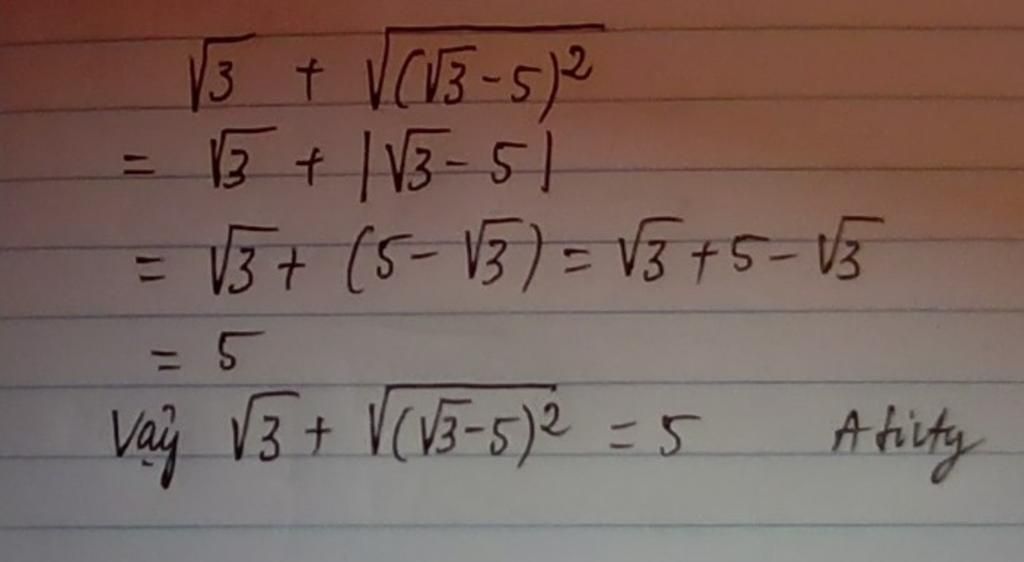 √3 + √(√3-5)²
= √3 + |√3-5|
= √3 + (5-√3) = √3+5-√3
= 5
Vậy √3 + √(√3-5)² = 5